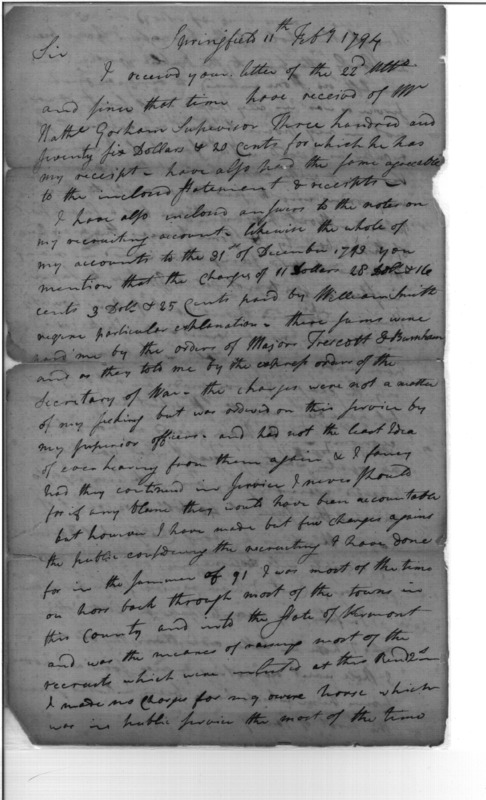 Springfield 11th Feby 1794
Sir
I received your letter of the 22d Ulto
and since that time have received of Mr
Nathl Gorham Supervisor Three hundred and
seventy six Dollars & 20 Cents for which he has
my receipt - have also paid the same agreeable
to the inclosed statement & receipts -
I have also inclosed answers to the notes on
my recruiting account - likewise the whole of
my accounts to the 31st of December 1793 you
mention that the Charges of 11 Dollars 28 Dolls & 16
cents 3 Dols & 25 Cents paid by William Smith
require particular explanation - these sums were
paid me by the orders of Majors Trescott & Burnham
and as they told me by the express orders of the
Secretary of War - the charges were not a matter
of my seeking but was ordered on this service by
my superior officers - and had not the least Idea
of ever hearing from them again & I fancy
had they continued in service I never should
for if any blame they would have been accountable
but however I have made but few charges against
the public considering the recruiting I have done
for in the summer of 91 I was most of the time
on hors back through most of the towns in
this County and into the State of Vermont
and was the means of raising most of the
recruits which were inlisted at this Rendzs
I made no Charges for my owne horse which
was in public service the most of the time